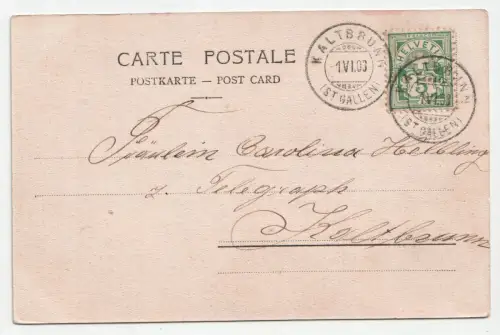 CARTE POSTALE
POSTKARTE — POST CARD
KALTBRUNN
1.VI.03
(ST. GALLEN)
HELVETIA
5
KALTBRUNN
(ST. GALLEN)
Fräulein Carolina Helbling
z. Telegraph
Kaltbrunn